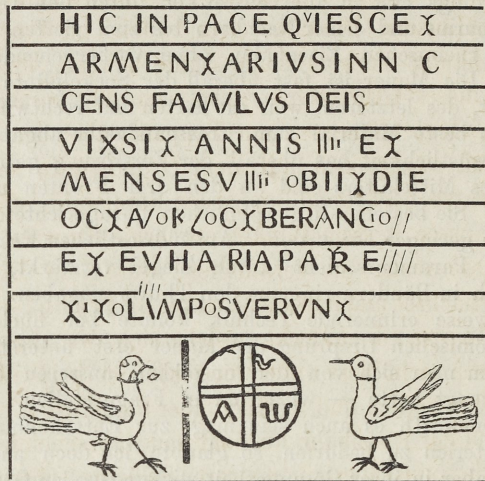 HIC IN PACE QVIESCET
ARMENTARIVS INN C
CENS FAMVLVS DEIS
VIXSIT ANNIS IIII ET
MENSES VIIII OBIIT DIE
OCTAVO K L OCTBERANCIO
ET EVHARIA PATRE
TITOLVM POSVERVNT
A W